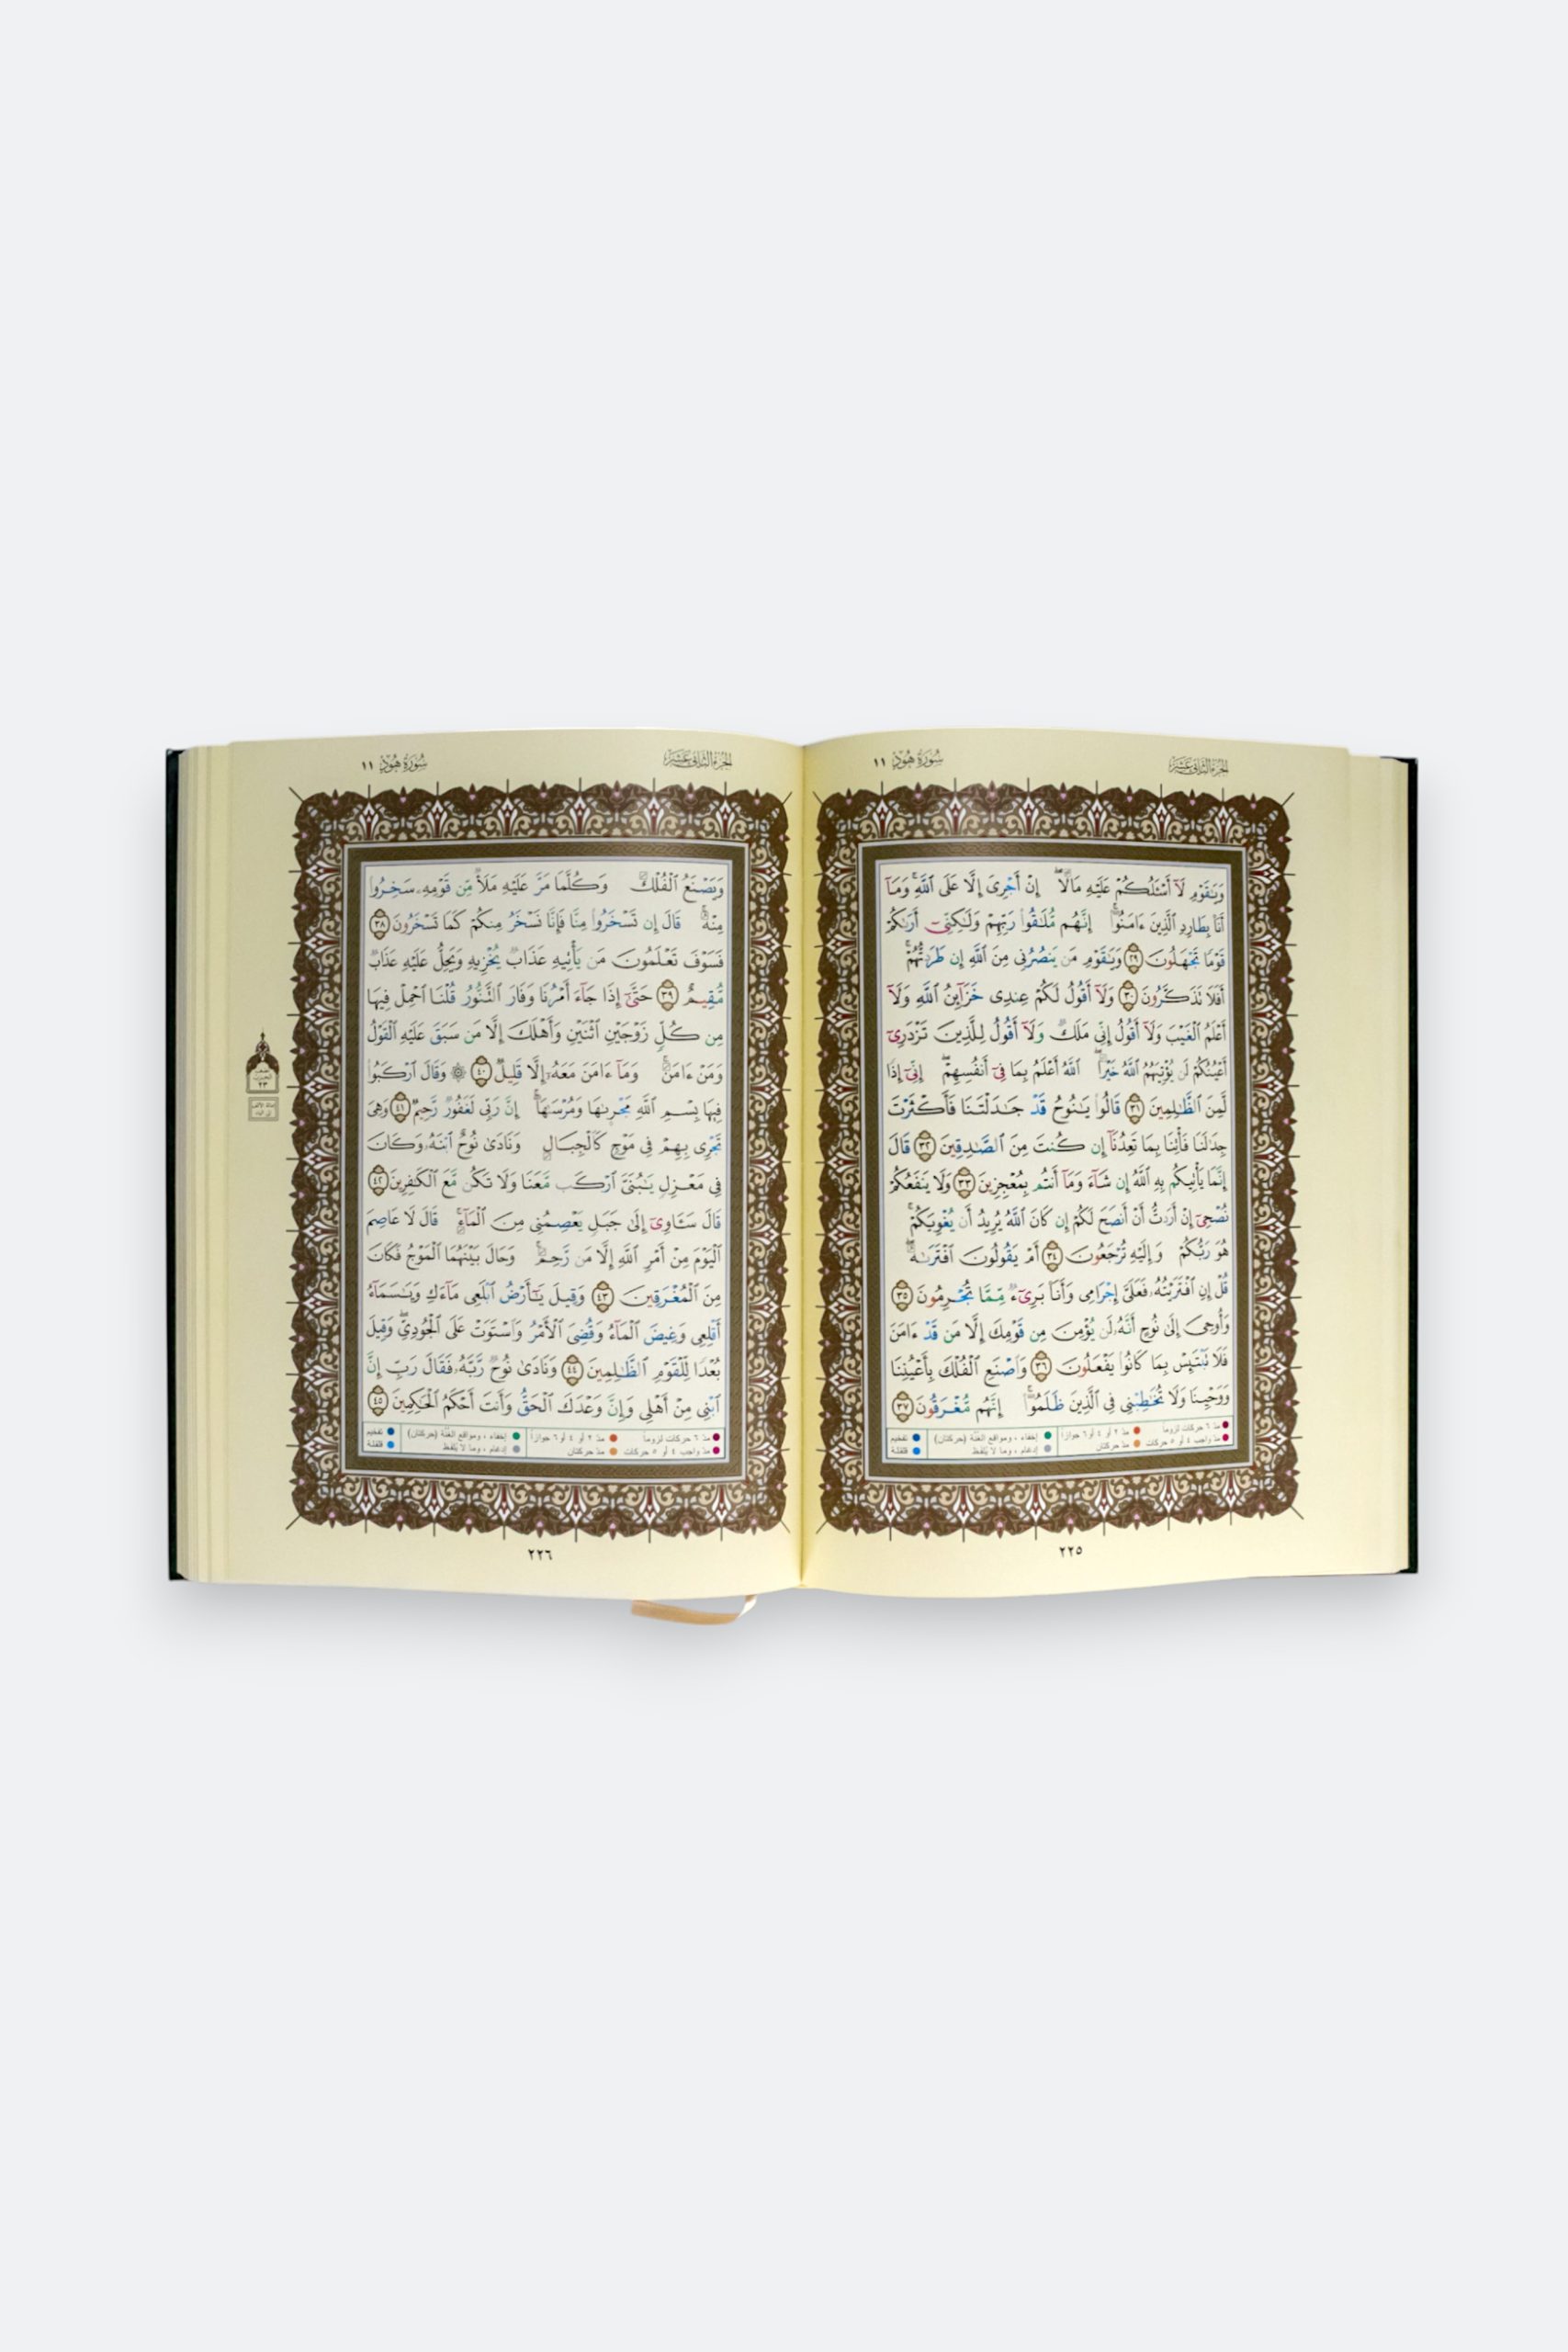 الجزء الثاني عشر
سُورَةُ هُودٍ ١١
وَيَٰقَوْمِ لَآ أَسْـَٔلُكُمْ عَلَيْهِ مَالًا ۖ إِنْ أَجْرِىَ إِلَّا عَلَى ٱللَّهِ ۚ وَمَآ
أَنَا۠ بِطَارِدِ ٱلَّذِينَ ءَامَنُوٓا۟ ۚ إِنَّهُم مُّلَٰقُوا۟ رَبِّهِمْ وَلَٰكِنِّىٓ أَرَىٰكُمْ
قَوْمًا تَجْهَلُونَ ٢٩ وَيَٰقَوْمِ مَن يَنصُرُنِى مِنَ ٱللَّهِ إِن طَرَدتُّهُمْ ۚ
أَفَلَا تَذَكَّرُونَ ٣٠ وَلَآ أَقُولُ لَكُمْ عِندِى خَزَآئِنُ ٱللَّهِ وَلَآ
أَعْلَمُ ٱلْغَيْبَ وَلَآ أَقُولُ إِنِّى مَلَكٌ وَلَآ أَقُولُ لِلَّذِينَ تَزْدَرِىٓ
أَعْيُنُكُمْ لَن يُؤْتِيَهُمُ ٱللَّهُ خَيْرًا ۖ ٱللَّهُ أَعْلَمُ بِمَا فِىٓ أَنفُسِهِمْ ۖ إِنِّىٓ إِذًا
لَّمِنَ ٱلظَّٰلِمِينَ ٣١ قَالُوا۟ يَٰنُوحُ قَدْ جَٰدَلْتَنَا فَأَكْثَرْتَ
جِدَٰلَنَا فَأْتِنَا بِمَا تَعِدُنَآ إِن كُنتَ مِنَ ٱلصَّٰدِقِينَ ٣٢ قَالَ
إِنَّمَا يَأْتِيكُم بِهِ ٱللَّهُ إِن شَآءَ وَمَآ أَنتُم بِمُعْجِزِينَ ٣٣ وَلَا يَنفَعُكُمْ
نُصْحِىٓ إِنْ أَرَدتُّ أَنْ أَنصَحَ لَكُمْ إِن كَانَ ٱللَّهُ يُرِيدُ أَن يُغْوِيَكُمْ ۚ
هُوَ رَبُّكُمْ وَإِلَيْهِ تُرْجَعُونَ ٣٤ أَمْ يَقُولُونَ ٱفْتَرَىٰهُ ۖ
قُلْ إِنِ ٱفْتَرَيْتُهُۥ فَعَلَىَّ إِجْرَامِى وَأَنَا۠ بَرِىٓءٌ مِّمَّا تُجْرِمُونَ ٣٥
وَأُوحِىَ إِلَىٰ نُوحٍ أَنَّهُۥ لَن يُؤْمِنَ مِن قَوْمِكَ إِلَّا مَن قَدْ ءَامَنَ
فَلَا تَبْتَئِسْ بِمَا كَانُوا۟ يَفْعَلُونَ ٣٦ وَٱصْنَعِ ٱلْفُلْكَ بِأَعْيُنِنَا
وَوَحْيِنَا وَلَا تُخَٰطِبْنِى فِى ٱلَّذِينَ ظَلَمُوٓا۟ ۚ إِنَّهُم مُّغْرَقُونَ ٣٧
مدّ ٦ حركات لزوماً مدّ ٢ أو ٤ أو ٦ جوازاً إخفاء، ومواقع الغنّة (حركتان) تفخيم
مدّ واجب ٤ أو ٥ حركات مدّ حركتان إدغام، وما لا يُلفظ قلقلة
٢٢٥
الجزء الثاني عشر
سُورَةُ هُودٍ ١١
وَيَصْنَعُ ٱلْفُلْكَ وَكُلَّمَا مَرَّ عَلَيْهِ مَلَأٌ مِّن قَوْمِهِۦ سَخِرُوا۟
مِنْهُ ۚ قَالَ إِن تَسْخَرُوا۟ مِنَّا فَإِنَّا نَسْخَرُ مِنكُمْ كَمَا تَسْخَرُونَ ٣٨
فَسَوْفَ تَعْلَمُونَ مَن يَأْتِيهِ عَذَابٌ يُخْزِيهِ وَيَحِلُّ عَلَيْهِ عَذَابٌ
مُّقِيمٌ ٣٩ حَتَّىٰٓ إِذَا جَآءَ أَمْرُنَا وَفَارَ ٱلتَّنُّورُ قُلْنَا ٱحْمِلْ فِيهَا
مِن كُلٍّ زَوْجَيْنِ ٱثْنَيْنِ وَأَهْلَكَ إِلَّا مَن سَبَقَ عَلَيْهِ ٱلْقَوْلُ
وَمَنْ ءَامَنَ ۚ وَمَآ ءَامَنَ مَعَهُۥٓ إِلَّا قَلِيلٌ ٤٠ ۞ وَقَالَ ٱرْكَبُوا۟
فِيهَا بِسْمِ ٱللَّهِ مَجْر۪ىٰهَا وَمُرْسَىٰهَآ ۚ إِنَّ رَبِّى لَغَفُورٌ رَّحِيمٌ ٤١ وَهِىَ
تَجْرِى بِهِمْ فِى مَوْجٍ كَٱلْجِبَالِ وَنَادَىٰ نُوحٌ ٱبْنَهُۥ وَكَانَ
فِى مَعْزِلٍ يَٰبُنَىَّ ٱرْكَب مَّعَنَا وَلَا تَكُن مَّعَ ٱلْكَٰفِرِينَ ٤٢
قَالَ سَـَٔاوِىٓ إِلَىٰ جَبَلٍ يَعْصِمُنِى مِنَ ٱلْمَآءِ ۚ قَالَ لَا عَاصِمَ
ٱلْيَوْمَ مِنْ أَمْرِ ٱللَّهِ إِلَّا مَن رَّحِمَ ۚ وَحَالَ بَيْنَهُمَا ٱلْمَوْجُ فَكَانَ
مِنَ ٱلْمُغْرَقِينَ ٤٣ وَقِيلَ يَٰٓأَرْضُ ٱبْلَعِى مَآءَكِ وَيَٰسَمَآءُ
أَقْلِعِى وَغِيضَ ٱلْمَآءُ وَقُضِىَ ٱلْأَمْرُ وَٱسْتَوَتْ عَلَى ٱلْجُودِىِّ ۖ وَقِيلَ
بُعْدًا لِّلْقَوْمِ ٱلظَّٰلِمِينَ ٤٤ وَنَادَىٰ نُوحٌ رَّبَّهُۥ فَقَالَ رَبِّ إِنَّ
ٱبْنِى مِنْ أَهْلِى وَإِنَّ وَعْدَكَ ٱلْحَقُّ وَأَنتَ أَحْكَمُ ٱلْحَٰكِمِينَ ٤٥
مدّ ٦ حركات لزوماً مدّ ٢ أو ٤ أو ٦ جوازاً إخفاء، ومواقع الغنّة (حركتان) تفخيم
مدّ واجب ٤ أو ٥ حركات مدّ حركتان إدغام، وما لا يُلفظ قلقلة
٢٢٦